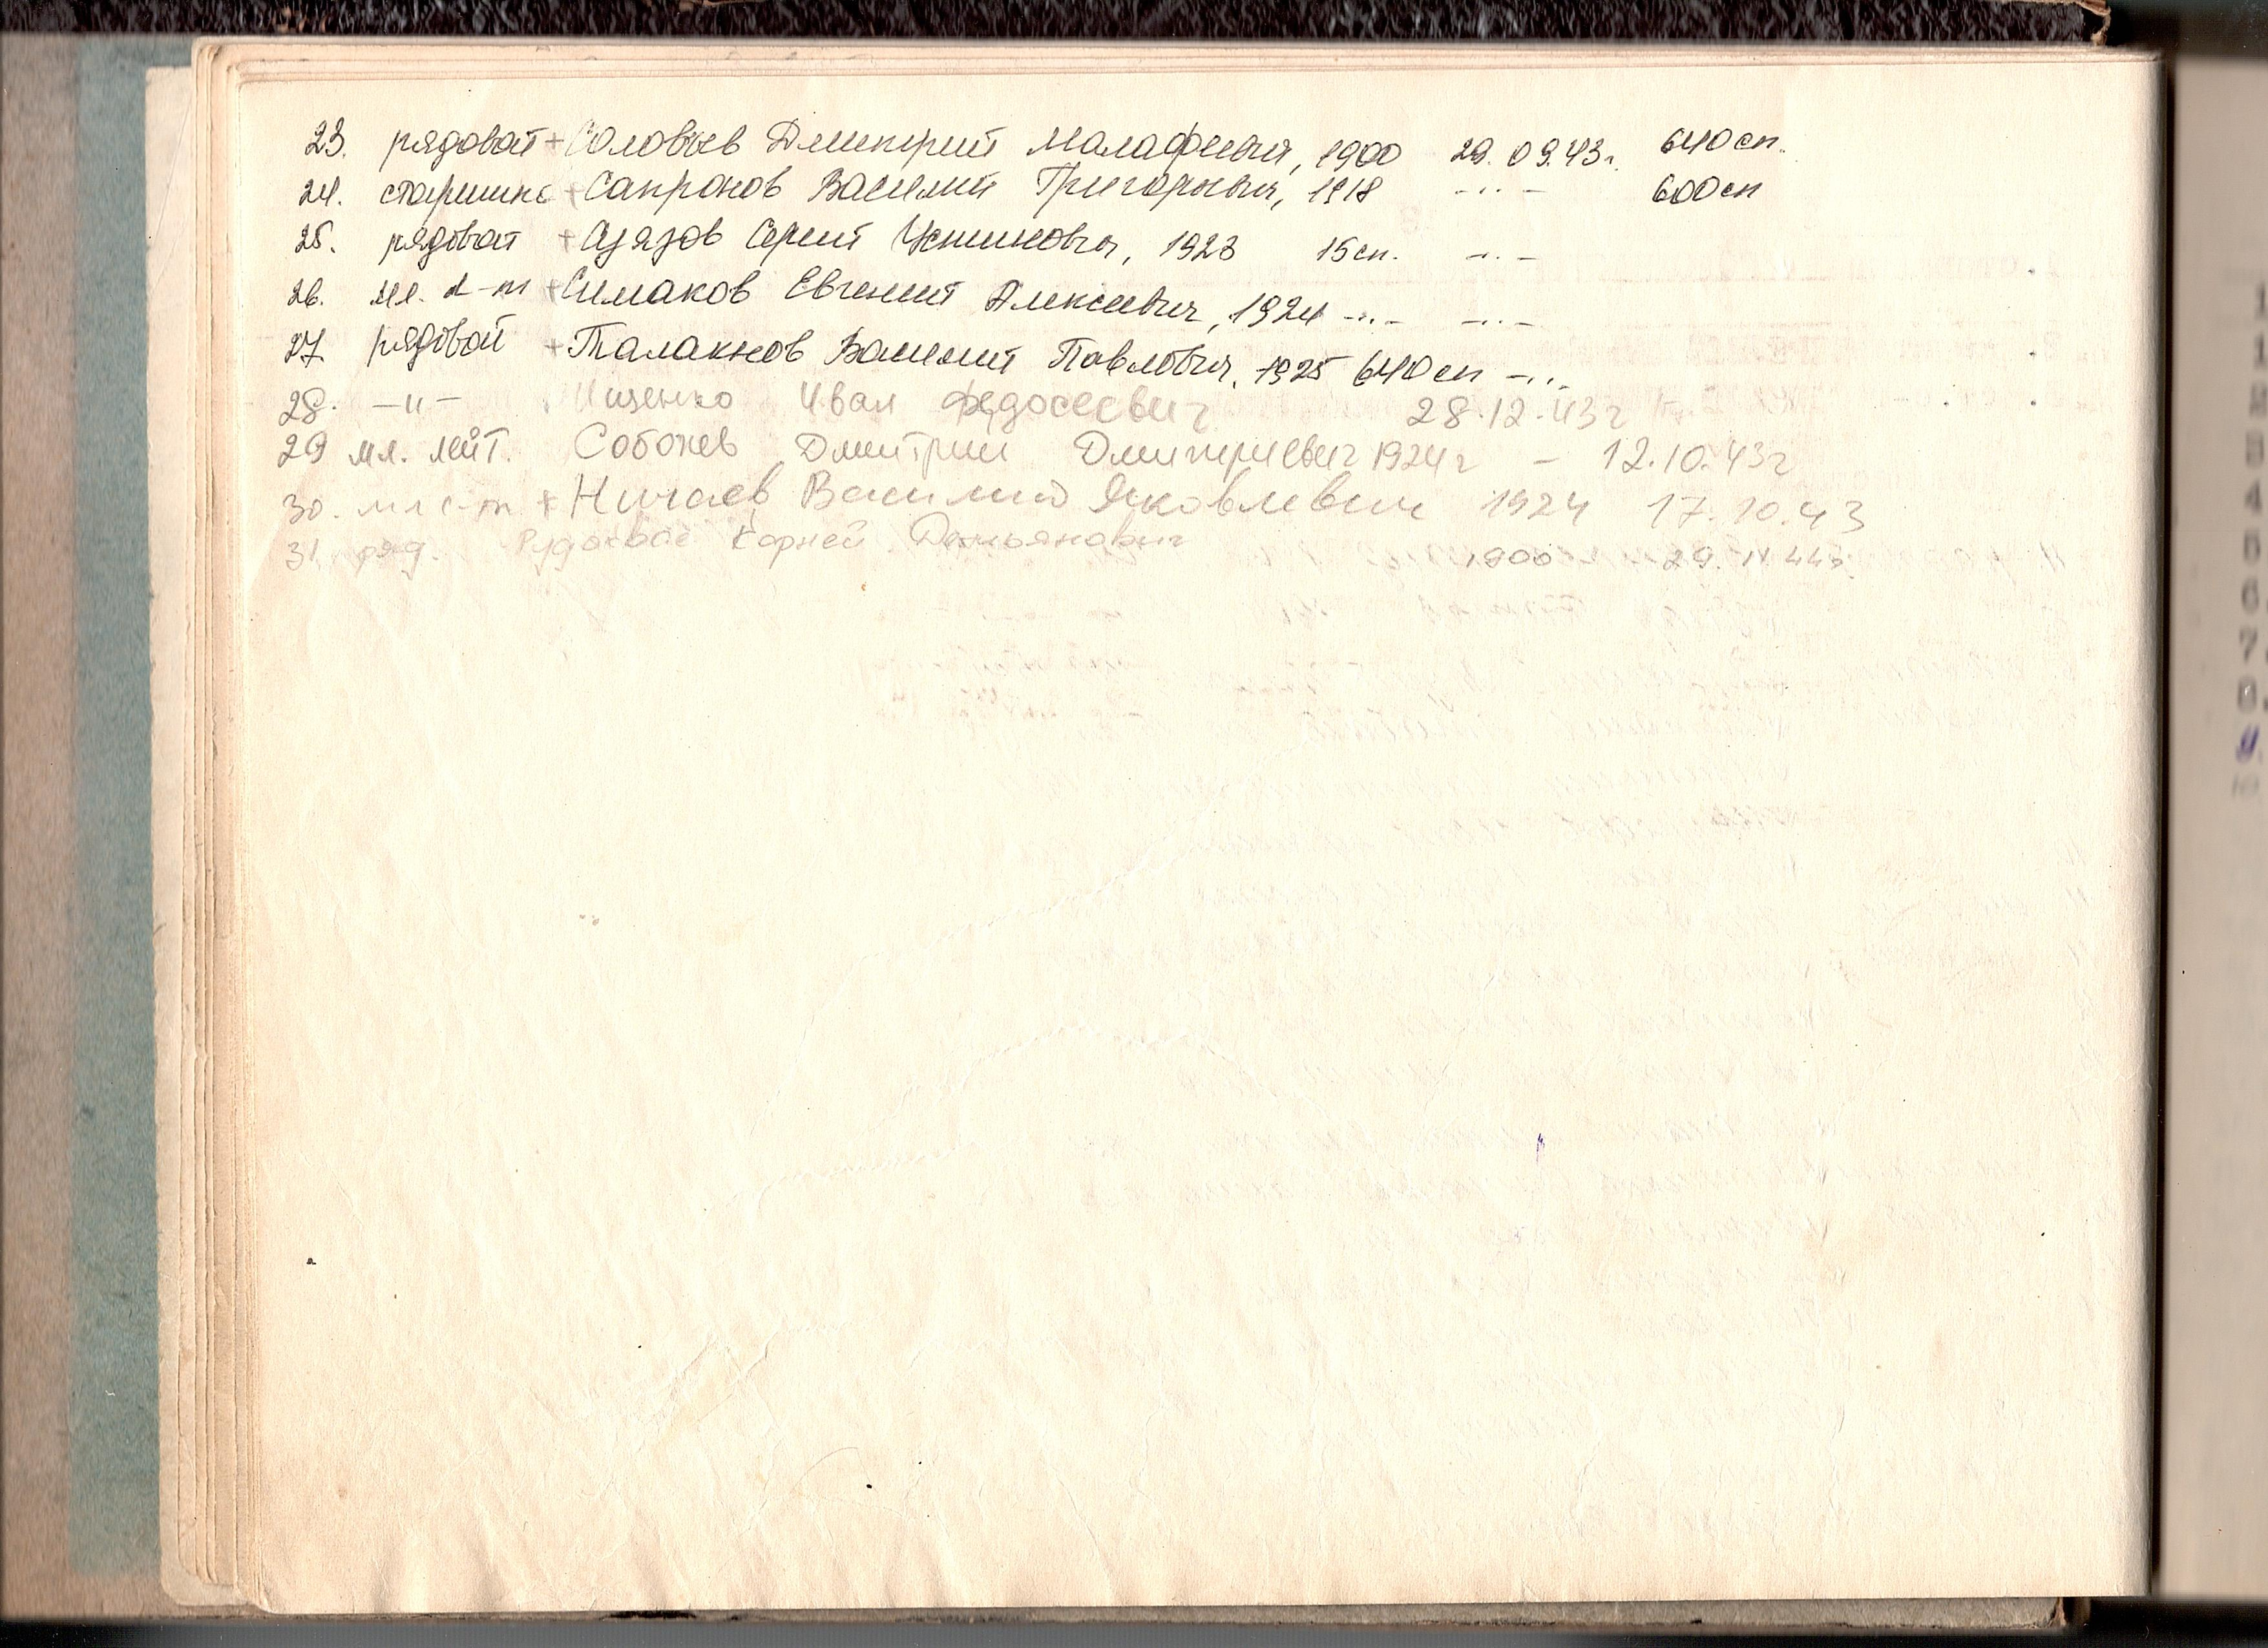 23. рядовой + Соловьев Дмитрий Малафеевич, 1900 29.09.43г. 640сп.
24. старшина + Сапронов Василий Григорьевич, 1918 -..- 600сп
25. рядовой + Сязов Сергей Устинович, 1923 15сп. -..-
26. мл. л-т + Симаков Евгений Алексеевич, 1924 -..- -..-
27. рядовой + Талакнов Василий Павлович, 1925 640сп -..-
28. -"- Ищенко Иван Федосеевич 28.12.43г
29 мл. лейт. Соболев Дмитрий Дмитриевич 1924г - 12.10.43г
30. мл с-т + Ничаев Василий Яковлевич 1924 17.10.43
31. ряд. Корней Демьянович 1900 29.